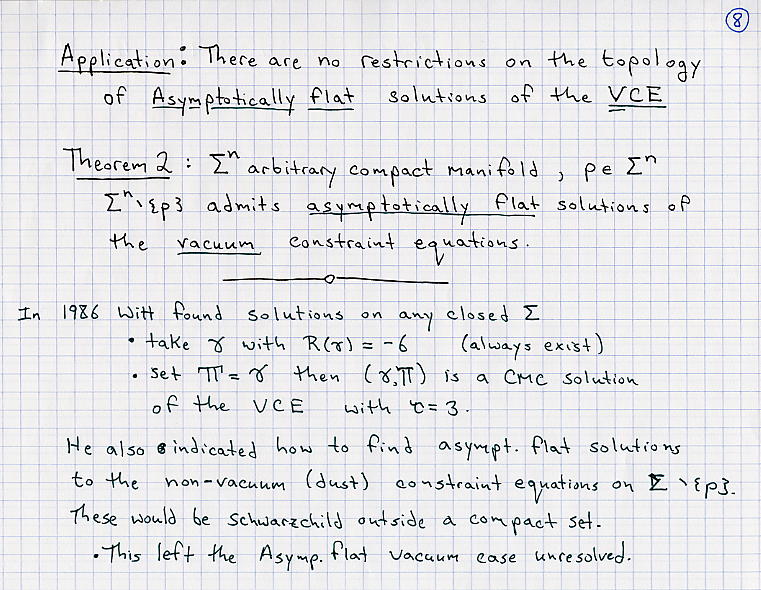 8
Application: There are no restrictions on the topology
of Asymptotically flat solutions of the VCE
Theorem 2 : Σⁿ arbitrary compact manifold , p ∈ Σⁿ
Σⁿ \ {p} admits asymptotically flat solutions of
the vacuum constraint equations.
In 1986 Witt found solutions on any closed Σ
• take γ with R(γ) = -6 (always exist)
• set π = γ then (γ, π) is a CMC solution
of the VCE with τ = 3.
He also indicated how to find asympt. flat solutions
to the non-vacuum (dust) constraint equations on Σ \ {p}.
These would be Schwarzchild outside a compact set.
• This left the Asymp. flat vacuum case unresolved.